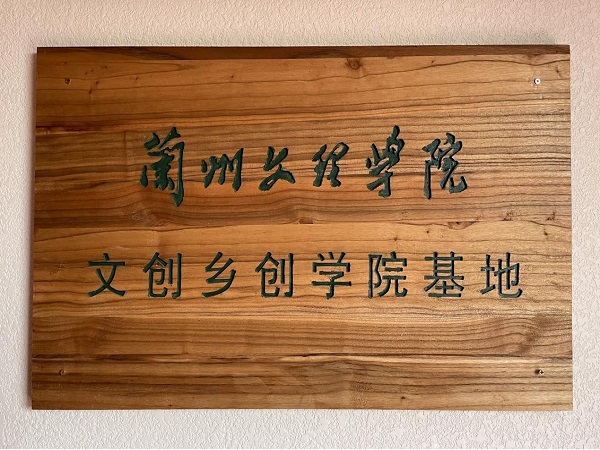 蘭州文理學院
文创乡创学院基地